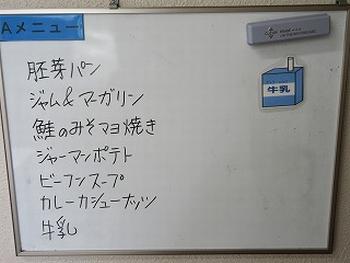 Aメニュー
胚芽パン
ジャム&マーガリン
鮭のみそマヨ焼き
ジャーマンポテト
ビーフンスープ
カレーカシューナッツ
牛乳
牛乳